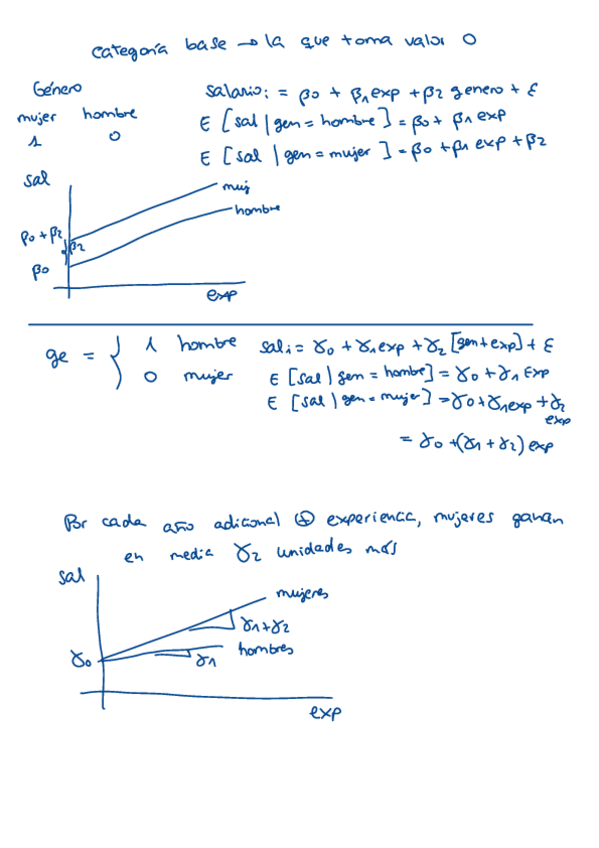 categoría base → la que toma valor 0
Género
mujer hombre
1 0
salario i = β0 + β1 exp + β2 genero + ε
E [sal | gen = hombre] = β0 + β1 exp
E [sal | gen = mujer] = β0 + β1 exp + β2
sal
muj
hombre
β0 + β2
β2
β0
exp
ge = { 1 hombre
0 mujer
sal i = γ0 + γ1 exp + γ2 [gen + exp] + ε
E [sal | gen = hombre] = γ0 + γ1 Exp
E [sal | gen = mujer] = γ0 + γ1 exp + γ2
exp
= γ0 + (γ1 + γ2) exp
Por cada año adicional ⊕ experiencia, mujeres ganan
en media γ2 unidades más
sal
mujeres
γ1 + γ2
hombres
γ0
γ1
exp